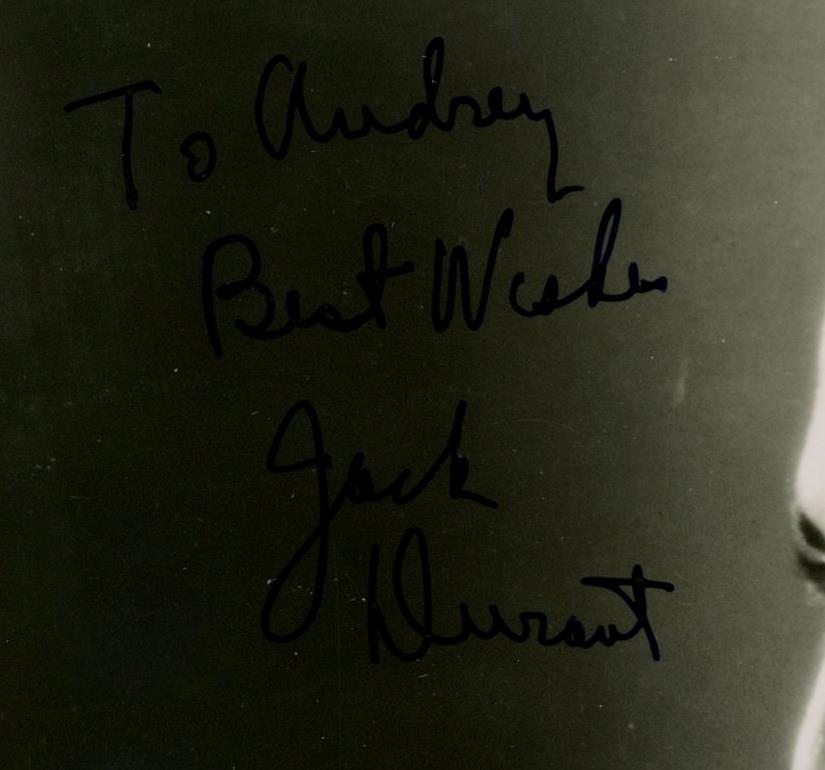 To Audrey
Best Wishes
Jack
Durant